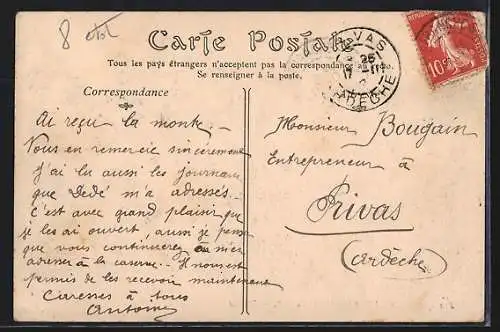 8 
Carte Postale
Tous les pays étrangers n'acceptent pas la correspondance au recto.
Se renseigner à la poste.
Correspondance
Ai reçu la montre -
Vous en remercie sincèrement
J'ai lu aussi les journaux
que Dédé m'a adressés.
C'est avec grand plaisir que
je les ai ouvert, aussi je pense
que vous continuerez à m'en
adresser à la caserne - Il nous est
permis de les recevoir maintenant
Caresses à tous
Antonin
Monsieur Bougain
Entrepreneur à
Privas
(Ardèche)
PRIVAS
25
ARDECHE
10